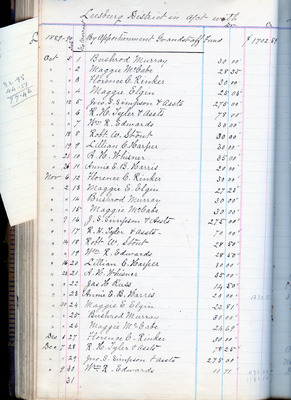 Leesburg District in acct with
1889-90 By Apportionment Grandstaff Fund $ 1702 51
Oct 5 1 Bushrod Murray 30 00
" " 2 Maggie McCabe 28 35
" " 3 Florence C. Rinker 30 00
" " 4 Maggie Elgin 25 05
" 12 5 Jno. S. Simpson & assts 275 00
" " 6 R. H. Tyler & assts 78 00
" " 7 Wm R. Edwards 30 00
" 18 8 Robt. W. Stout 30 00
" 19 9 Lillian E. Harper 30 00
" 21 10 A. H. Whisner 35 00
" 26 11 Annie E. B. Harris 20 00
Nov 6 12 Florence C. Rinker 30 00
" 2 13 Maggie E. Elgin 27 22
" " 14 Bushrod Murray 30 00
" " 15 Maggie McCabe 30 00
" 9 16 J. S. Simpson & assts 275 00
" " 17 R. H. Tyler & assts 70 00
" 14 18 Robt W. Stout 28 50
" " 19 Wm R. Edwards 28 50
" 16 20 Lillian E. Harper 30 00
" 21 A. H. Whisner 35 00
" " 22 Jas H. Russ 14 50
" 23 Annie E. B. Harris 20 00
" 24 Maggie E. Elgin 22 81
" " 25 Bushrod Murray 30 00
" " 26 Maggie McCabe 24 69
Dec 27 Florence C. Rinker 30 00
Dec 7 28 R. H. Tyler & assts 78 25
" " 29 Jno. S. Simpson & assts 275 00
" 9 30 Wm R. Edwards 11 71
31